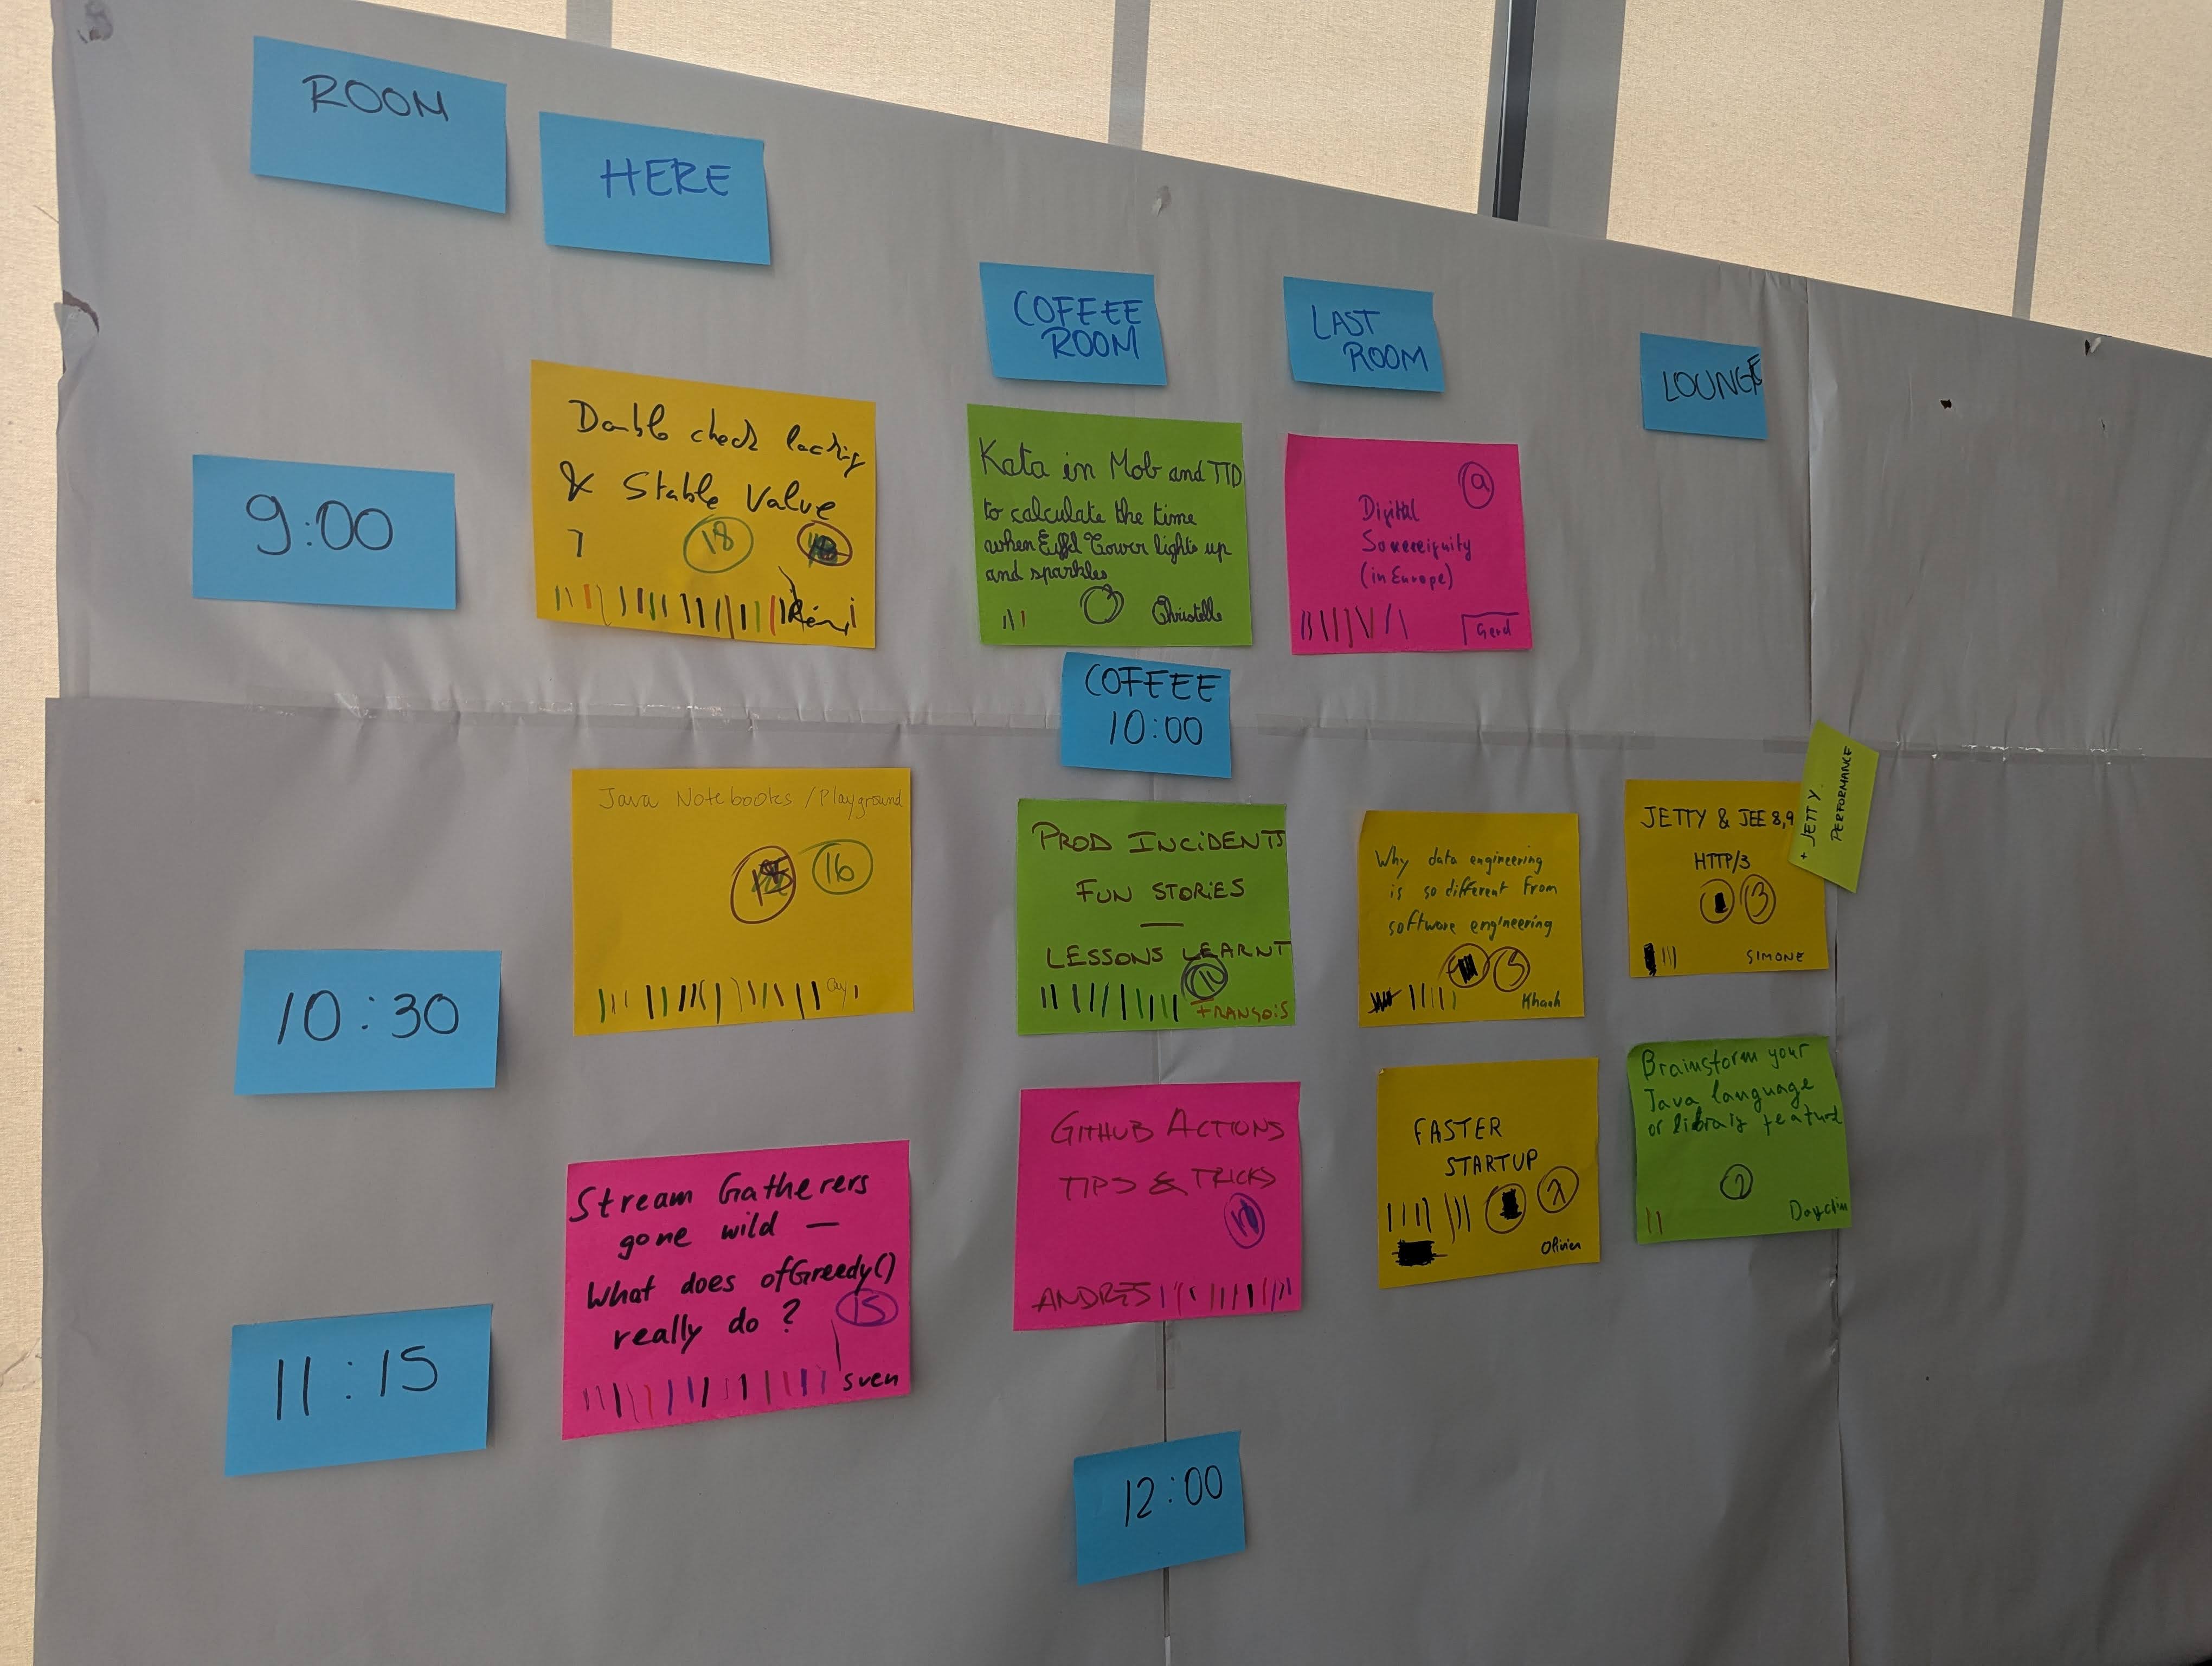 ROOM
HERE
COFFEE
ROOM
LAST
ROOM
LOUNGE
9:00
Double check locking
& Stable Value
18
Rémi
Kata in Mob and TTD
to calculate the time
when Eiffel Tower lights up
and sparkles
Christelle
9
Digital
Sovereignity
(in Europe)
Gerd
COFFEE
10:00
10:30
Java Notebooks / Playground
16
PROD INCIDENTS
FUN STORIES
—
LESSONS LEARNT
FRANÇOIS
Why data engineering
is so different from
software engineering
5
Khanh
JETTY & JEE 8,9
HTTP/3
3
SIMONE
+ JETTY
PERFORMANCE
11:15
Stream Gatherers
gone wild —
What does ofGreedy()
really do ?
15
Sven
GITHUB ACTIONS
TIPS & TRICKS
ANDRES
FASTER
STARTUP
Olivier
Brainstorm your
Java language
or library feature
2
12:00